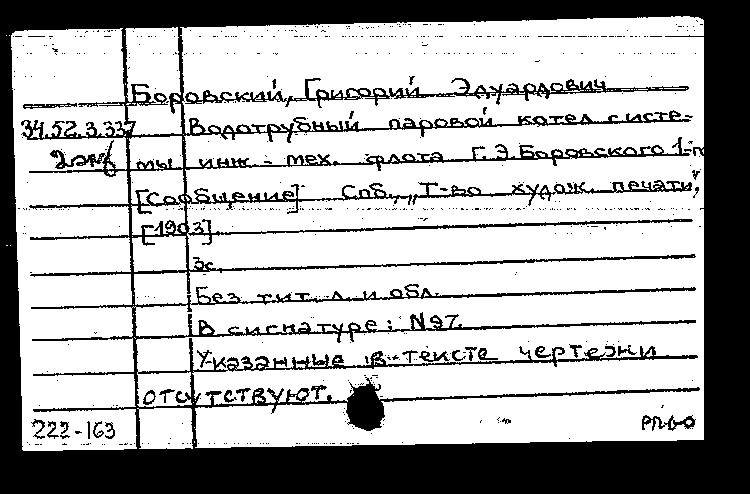 Боровский, Григорий Эдуардович
34.52.3.337 Водотрубный паровой котел систе-
2 экз мы инж.-мех. флота Г.Э.Боровского 1-го
[Сообщение] Спб., „Т-во худож. печати",
[1903].
3с.
Без тит. л. и обл.
В сигнатуре: N97.
Указанные в тексте чертежи
отсутствуют.
222-163